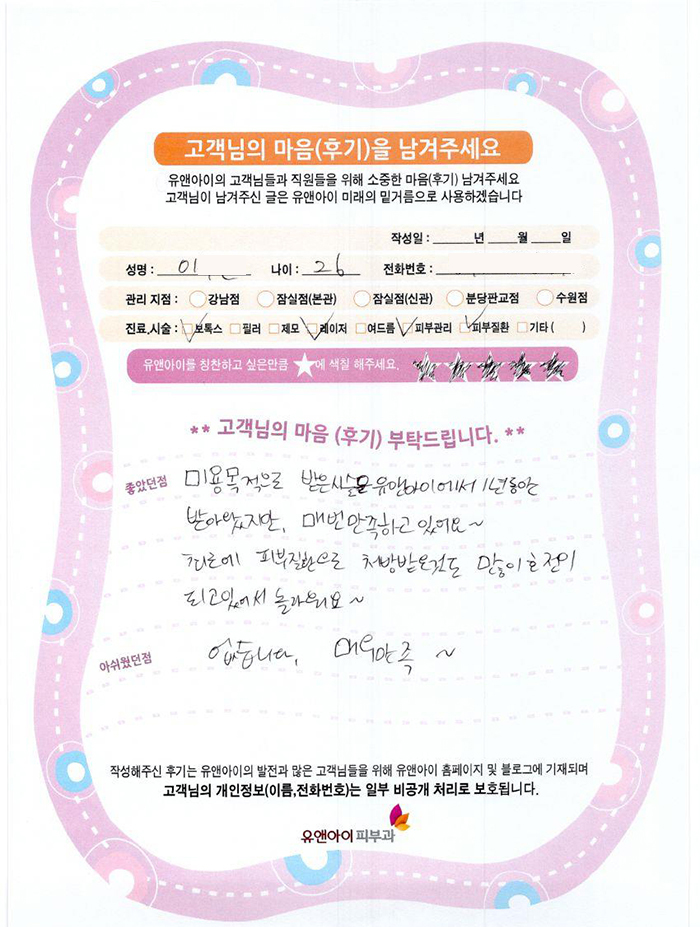 고객님의 마음(후기)을 남겨주세요
유앤아이의 고객님들과 직원들을 위해 소중한 마음(후기) 남겨주세요
고객님이 남겨주신 글은 유앤아이 미래의 밑거름으로 사용하겠습니다
작성일 : ______년 _____월 _____일
성명 : 이 나이 : 26 전화번호 :
관리 지점 : 강남점 잠실점(본관) 잠실점(신관) 분당판교점 수원점
진료,시술 : 보톡스 필러 제모 레이저 여드름 피부관리 피부질환 기타 ( )
유앤아이를 칭찬하고 싶은만큼 ★에 색칠 해주세요.
** 고객님의 마음 (후기) 부탁드립니다. **
좋았던점 미용목적으로 받은시술은 유앤아이에서 1년동안
받아왔지만, 매번만족하고 있어요~
최근에 피부질환으로 처방받은것도 많이 호전이
되고있어서 놀라워요~
아쉬웠던점 없습니다, 매우만족 ~
작성해주신 후기는 유앤아이의 발전과 많은 고객님들을 위해 유앤아이 홈페이지 및 블로그에 기재되며
고객님의 개인정보(이름,전화번호)는 일부 비공개 처리로 보호됩니다.
유앤아이피부과